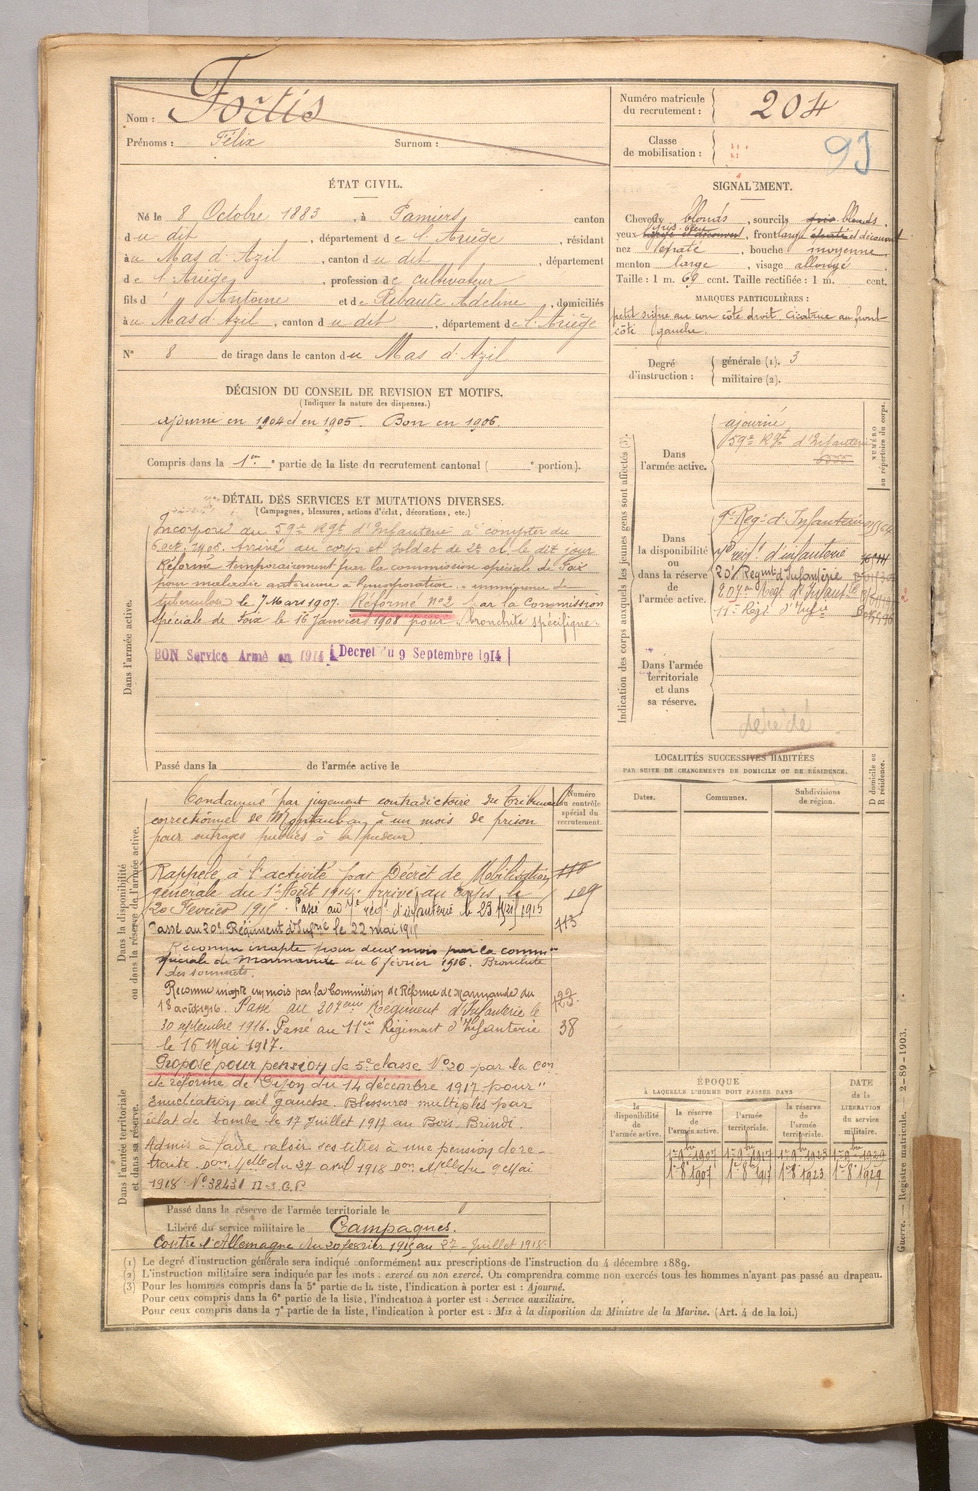 Nom : Fortis
Prénoms : Félix Surnom :
Numéro matricule du recrutement : 204
Classe de mobilisation : 93
ÉTAT CIVIL.
Né le 8 Octobre 1883, à Pamiers, canton
du dit, département de l'Ariège, résidant
à u Mas d'Azil, canton du dit, département
de l'Ariège, profession de cultivateur
fils d' Antoine et de Rebaute Adeline, domiciliés
à u Mas d'Azil, canton du dit, département de l'Ariège
N° 8 de tirage dans le canton du Mas d'Azil
DÉCISION DU CONSEIL DE REVISION ET MOTIFS.
(Indiquer la nature des dispenses.)
Ajourné en 1904 et en 1905. Bon en 1906.
Compris dans la 1re partie de la liste du recrutement cantonal ( e portion).
SIGNALEMENT.
Cheveux blonds, sourcils blonds,
yeux gris bleu, front large et découvert
nez épaté, bouche moyenne
menton large, visage allongé
Taille : 1 m. 69 cent. Taille rectifiée : 1 m. cent.
MARQUES PARTICULIÈRES :
petit signe au cou côté droit, cicatrice au front
côté gauche.
Degré d'instruction : générale (1). 3
militaire (2).
Indication des corps auxquels les jeunes gens sont affectés (3).
NUMÉRO au répertoire du corps.
Dans l'armée active.
ajourné
59e Régt d'Infanterie
Dans la disponibilité ou dans la réserve de l'armée active.
9e Régt d'Infanterie
7e régt d'infanterie
20e Régimt d'Infanterie
207me Régt d'Infant
11e Régt d'Infie
Dans l'armée territoriale et dans sa réserve.
décédé
DÉTAIL DES SERVICES ET MUTATIONS DIVERSES.
(Campagnes, blessures, actions d'éclat, décorations, etc.)
Dans l'armée active.
Incorporé au 59e Régt d'Infanterie à compter du
6 oct. 1906. Arrivé au corps et soldat de 2e cl. le dit jour
Réformé temporairement par la commission spéciale de Foix
pour maladie antérieure à l'incorporation
le 7 Mars 1907. Réformé n°2 par la Commission
spéciale de Foix le 16 Janvier 1908 pour Bronchite spécifique.
BON Service Armé en 1914 Décret du 9 Septembre 1914
Passé dans la de l'armée active le
Dans la disponibilité ou dans la réserve de l'armée active.
Numéro du contrôle spécial du recrutement.
Condamné par jugement contradictoire du tribunal
correctionnel de Montauban à un mois de prison
pour outrages publics à la pudeur.
Rappelé à l'activité par Décret de Mobilisation
générale du 1er Août 1914. Arrivé au Corps le
109
20 Février 1915. Passé au 7e régt d'infanterie le 23 1915
Passé au 20e Régiment d'Infrie le 22 mai 1915
113
Reconnu inapte pour deux mois par la comon
spéciale de Marmande du 6 février 1916. Bronchite
des sommets.
Reconnu inapte un mois par la Commission de Réforme de Marmande du
18 août 1916. Passé au 207ème Régiment d'Infanterie le
123
20 septembre 1916. Passé au 11e Régiment d'Infanterie
38
le 16 Mai 1917.
Proposé pour pension de 5e classe N° 20 par la Con
de réforme de Dijon du 14 décembre 1917 pour "
Enucléation œil gauche. Blessures multiples par
éclat de bombe le 17 Juillet 1917 au Bois Brindé.
Admis à faire valoir ses titres à une pension de re-
traite. Don Melle du 27 avril 1918 Don Melle du 9 Mai
1918 N° 38431
Dans l'armée territoriale et dans sa réserve.
Passé dans la réserve de l'armée territoriale le
Libéré du service militaire le
Campagnes.
Contre l'Allemagne du 20 février 1915 au 27 Juillet 1918
LOCALITÉS SUCCESSIVES HABITÉES
PAR SUITE DE CHANGEMENTS DE DOMICILE OU DE RÉSIDENCE.
Dates. Communes. Subdivisions de région.
D domicile ou R résidence.
ÉPOQUE
À LAQUELLE L'HOMME DOIT PASSER DANS
DATE de la LIBÉRATION du service militaire.
la disponibilité de l'armée active. la réserve de l'armée active. l'armée territoriale. la réserve de l'armée territoriale.
1er 8bre 1907 1er 8bre 1917 1er 8bre 1923 1er 8bre 1929
Guerre. — Registre matricule. 2-89-1903.
(1) Le degré d'instruction générale sera indiqué conformément aux prescriptions de l'instruction du 4 décembre 1889.
(2) L'instruction militaire sera indiquée par les mots : exercé ou non exercé. On comprendra comme non exercés tous les hommes n'ayant pas passé au drapeau.
(3) Pour les hommes compris dans la 5e partie de la liste, l'indication à porter est : Ajourné.
Pour ceux compris dans la 6e partie de la liste, l'indication à porter est : Service auxiliaire.
Pour ceux compris dans la 7e partie de la liste, l'indication à porter est : Mis à la disposition du Ministre de la Marine. (Art. 4 de la loi.)